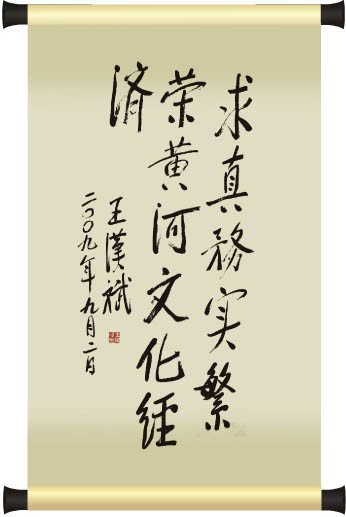 求真務实繁
荣黄河文化経
済
王漢斌
二〇〇九年九月二日